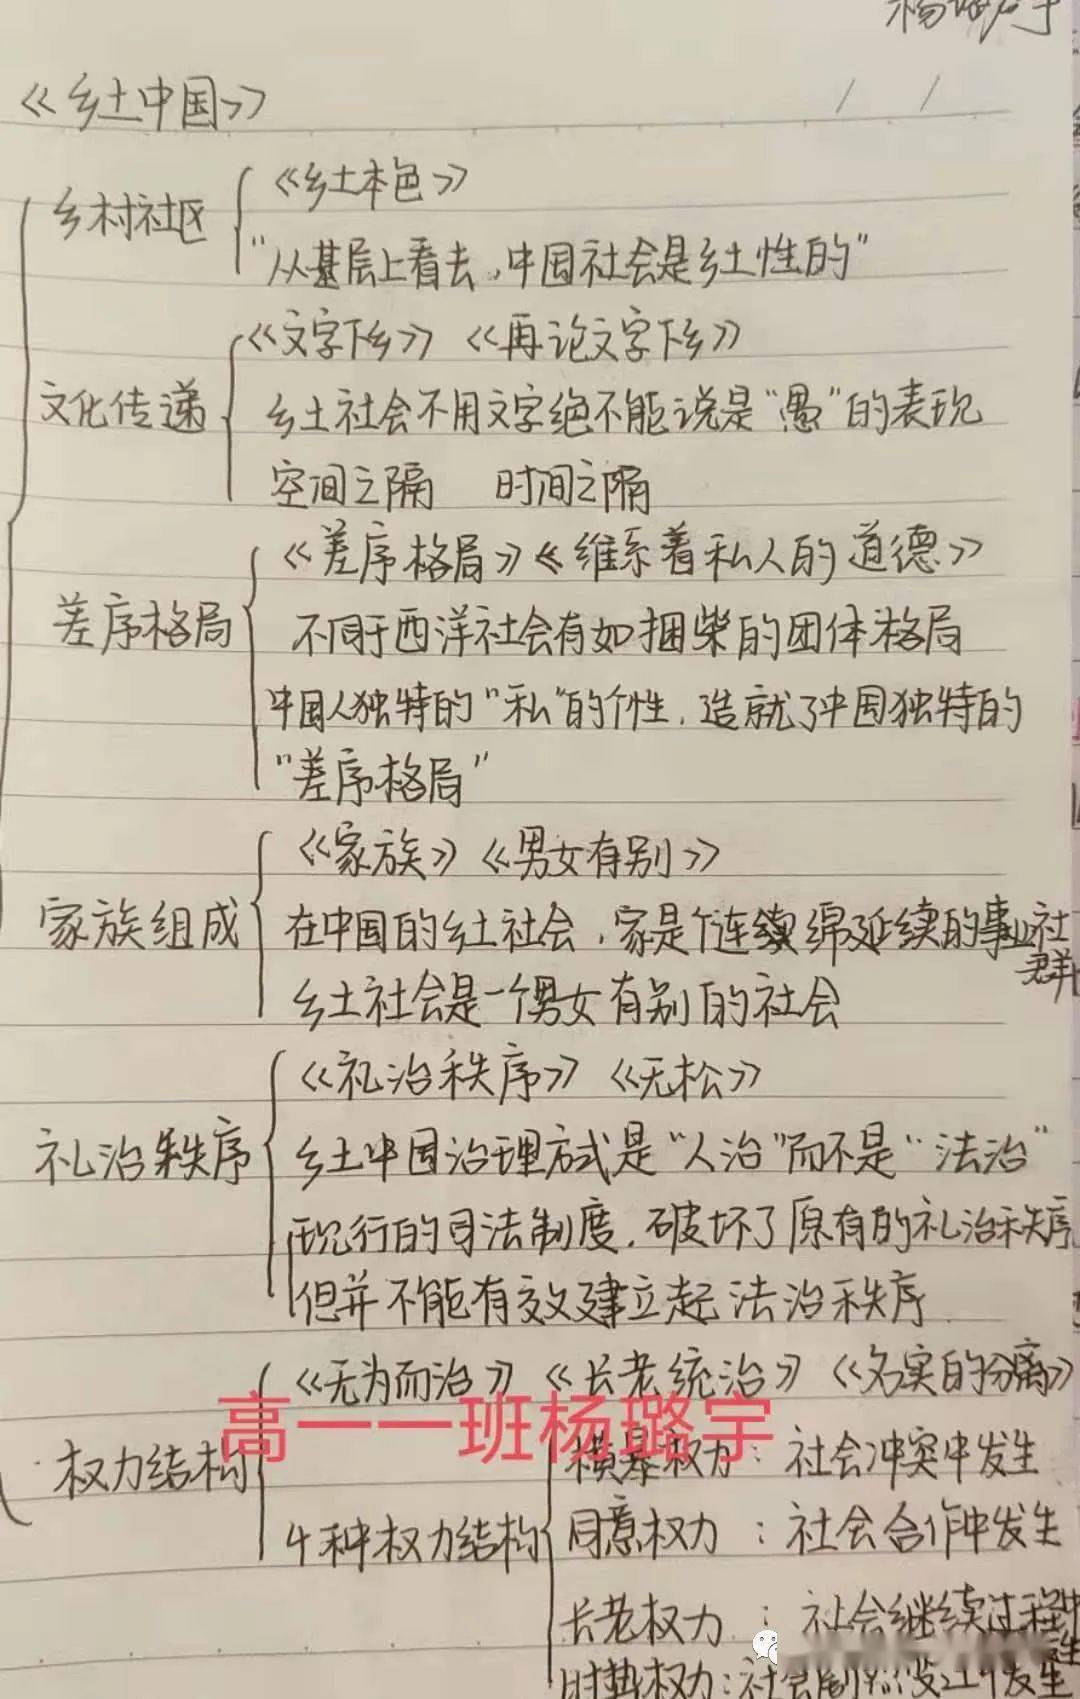 杨璐宇
《乡土中国》
/ /
乡村社区
《乡土本色》
"从基层上看去，中国社会是乡土性的"
文化传递
《文字下乡》《再论文字下乡》
乡土社会不用文字绝不能说是"愚"的表现
空间之隔 时间之隔
差序格局
《差序格局》《维系着私人的道德》
不同于西洋社会有如捆柴的团体格局
中国人独特的"私"的个性，造就了中国独特的
"差序格局"
家族组成
《家族》《男女有别》
在中国的乡土社会，家是个连续绵延续的事业社
群
乡土社会是一个男女有别的社会
礼治秩序
《礼治秩序》《无松》
乡土中国治理方式是"人治"而不是"法治"
现行的司法制度，破坏了原有的礼治秩序
但并不能有效建立起法治秩序
权力结构
《无为而治》《长老统治》《名实的分离》
高一一班杨璐宇
4种权力结构
横暴权力：社会冲突中发生
同意权力：社会合作中发生
长老权力：社会继续过程中
生
时势权力：社会 发生